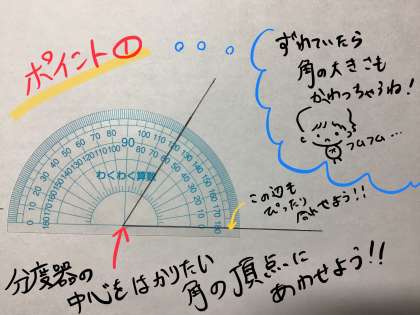 ポイント①
ずれていたら
角の大きさも
かわっちゃうね!
フムフム...
わくわく算数
この辺も
ぴったり
合わせよう!!
分度器の
中心をはかりたい
角の頂点に
あわせよう!!